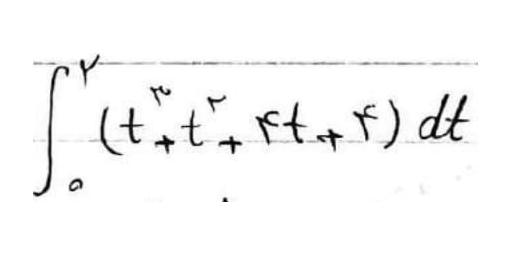 ∫₀^۲ (t^۳ + t^۲ + ۴t + ۴) dt